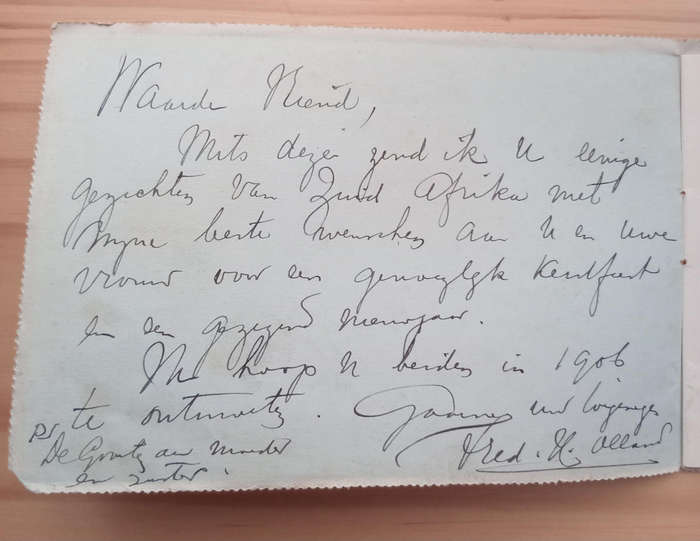 Waarde Vriend,
Mits dezer zend ik U eenige
gezichten van Zuid Afrika met
mijne beste wenschen aan U en uwe
vrouw voor een genoeglijk Kerstfeest
en een gezegend nieuwjaar.
Ik hoop U beiden in 1906
te ontmoeten.
Fred. H. Olland
PS. De Groeten aan moeder
en zuster.